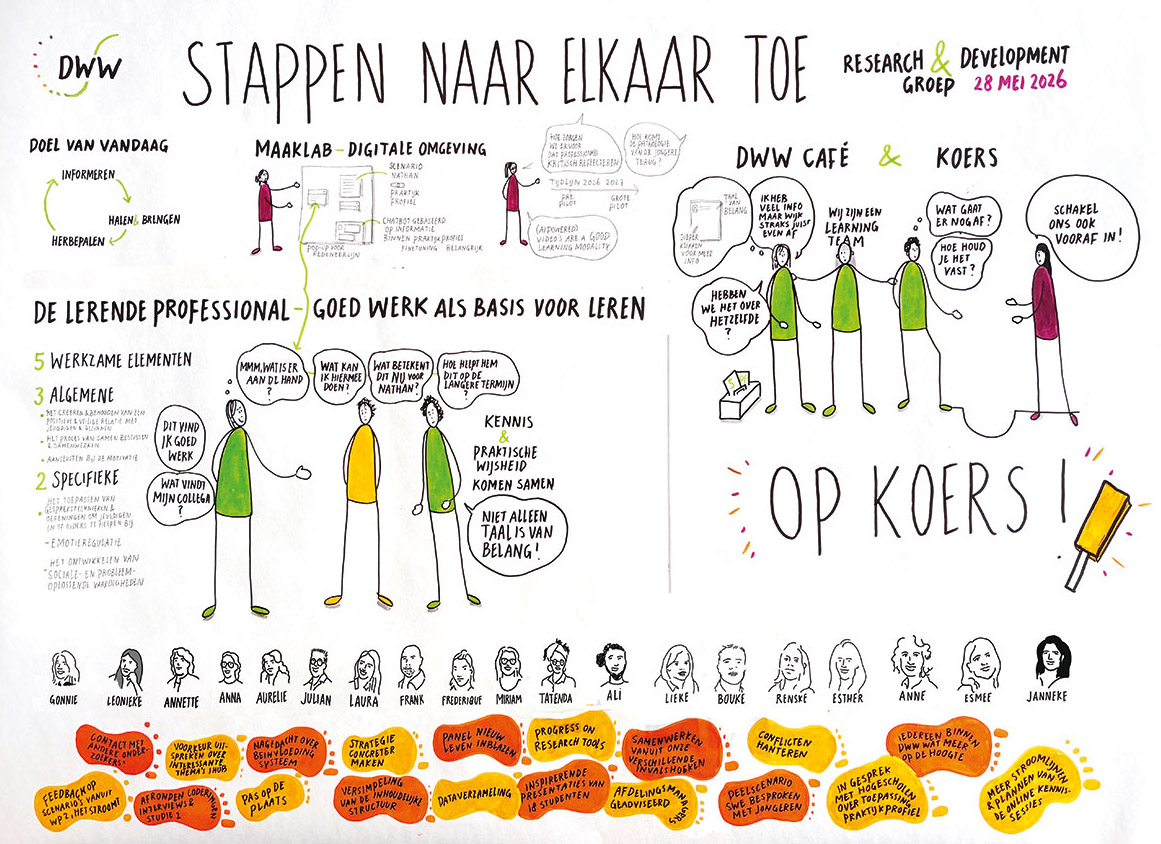 DWW
STAPPEN NAAR ELKAAR TOE
RESEARCH & DEVELOPMENT
GROEP 28 MEI 2026
DOEL VAN VANDAAG
INFORMEREN
HALEN & BRENGEN
HERBEPALEN
MAAKLAB - DIGITALE OMGEVING
SCENARIO
NATHAN
PRAKTIJK
PROFIEL
CHATBOT GEBASEERD
OP INFORMATIE
BINNEN PRAKTIJKPROFIEL
FINETUNING BELANGRIJK
POP-UP VOOR
REDENEERLIJN
HOE ZORGEN
WE ERVOOR
DAT PROFESSIONALS
KRITISCH REFLECTEREN?
HOE KOMT
DE PATHOLOGIE
VAN DE JONGERE
TERUG?
TIJDLYN 2026 2027
PRE
PILOT
GROTE
PILOT
(AI POWERED)
VIDEO'S ARE A GOOD
LEARNING MODALITY
DWW CAFÉ & KOERS
TAAL
VAN
BELANG
DIEPER
KIJKEN
VOOR MEER
INFO
IK HEB
VEEL INFO
MAAR WIJK
STRAKS JUIST
EVEN AF
WIJ ZIJN EEN
LEARNING
TEAM
WAT GAAT
ER NOG AF?
HOE HOUD
JE HET
VAST?
SCHAKEL
ONS OOK
VOORAF IN!
HEBBEN
WE HET OVER
HETZELFDE
?
DE LERENDE PROFESSIONAL - GOED WERK ALS BASIS VOOR LEREN
5 WERKZAME ELEMENTEN
3 ALGEMENE
• HET CREËREN & BEHOUDEN VAN EEN
POSITIEVE & VEILIGE RELATIE MET
JEUGDIGEN & GEZINNEN
• HET PROCES VAN SAMEN BESLISSEN
& SAMENWERKEN
• AANSLUITEN BIJ DE MOTIVATIE
2 SPECIFIEKE
• HET TOEPASSEN VAN
GESPREKSTECHNIEKEN &
OEFENINGEN OM JEUGDIGEN
EN/OF OUDERS TE HELPEN BIJ
- EMOTIEREGULATIE
HET ONTWIKKELEN VAN
SOCIALE- EN PROBLEEM-
OPLOSSENDE VAARDIGHEDEN
DIT VIND
IK GOED
WERK
WAT VINDT
MIJN COLLEGA
?
MMM, WAT IS ER
AAN DE HAND
?
WAT KAN
IK HIERMEE
DOEN?
WAT BETEKENT
DIT NU VOOR
NATHAN?
HOE HELPT HEM
DIT OP DE
LANGERE TERMIJN
?
KENNIS
&
PRAKTISCHE
WIJSHEID
KOMEN SAMEN
NIET ALLEEN
TAAL IS VAN
BELANG!
OP KOERS!
GONNIE LEONIEKE ANNETTE ANNA AURELIE JULIAN LAURA FRANK FREDERIQUE MIRIAM TATENDA ALI LIEKE BOUKE RENSKE ESTHER ANNE ESMEE JANNEKE
CONTACT MET
ANDERE ONDER-
ZOEKERS!
VOORKEUR UIT-
SPREKEN OVER
INTERESSANTE
THEMA'S IHUB
NAGEDACHT OVER
BEÏNVLOEDING
SYSTEEM
STRATEGIE
CONCRETER
MAKEN
PANEL NIEUW
LEVEN INBLAZEN
PROGRESS ON
RESEARCH TOOLS
SAMENWERKEN
VANUIT ONZE
VERSCHILLENDE
INVALSHOEKEN
CONFLICTEN
HANTEREN
IEDEREEN BINNEN
DWW WAT MEER
OP DE HOOGTE
FEEDBACK OP
SCENARIO'S VANUIT
WP 2, HET STROOMT
AFRONDEN CODERINGEN
INTERVIEWS &
STUDIE 1
PAS OP DE
PLAATS
VERSIMPELING
VAN DE INHOUDELIJKE
STRUCTUUR
DATAVERZAMELING
INSPIRERENDE
PRESENTATIES VAN
18 STUDENTEN
AFDELINGSMANAGERS
GEADVISEERD
DEELSCENARIO
SWE BESPROKEN
MET JONGEREN
IN GESPREK
MET HOGESCHOLEN
OVER TOEPASSING
PRAKTIJKPROFIEL
MEER STROOMLIJNEN
& PLANNEN VAN
DE ONLINE KENNIS-
SESSIES